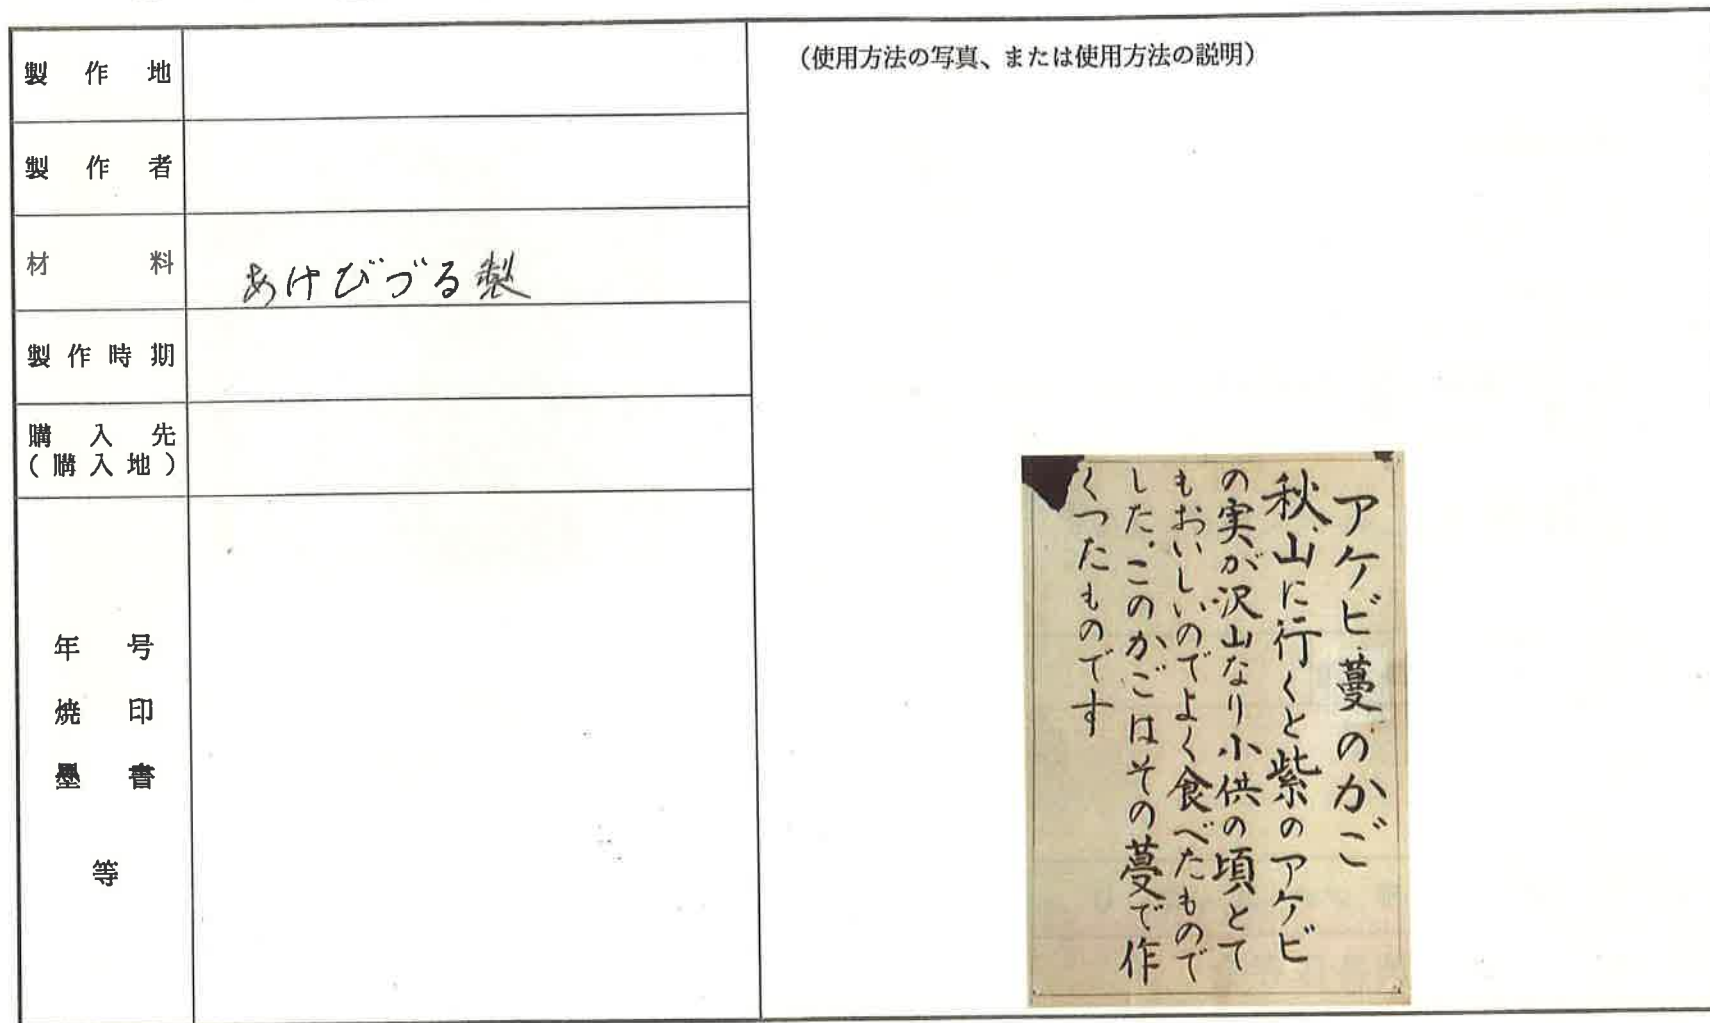 製作地
製作者
材料
あけびづる製
製作時期
購入先
(購入地)
年号
焼印
墨書
等
(使用方法の写真、または使用方法の説明)
アケビ蔓のかご
秋、山に行くと紫のアケビ
の実が沢山なり小供の頃とて
もおいしいのでよく食べたもので
した。このかごはその蔓で作
くつたものです